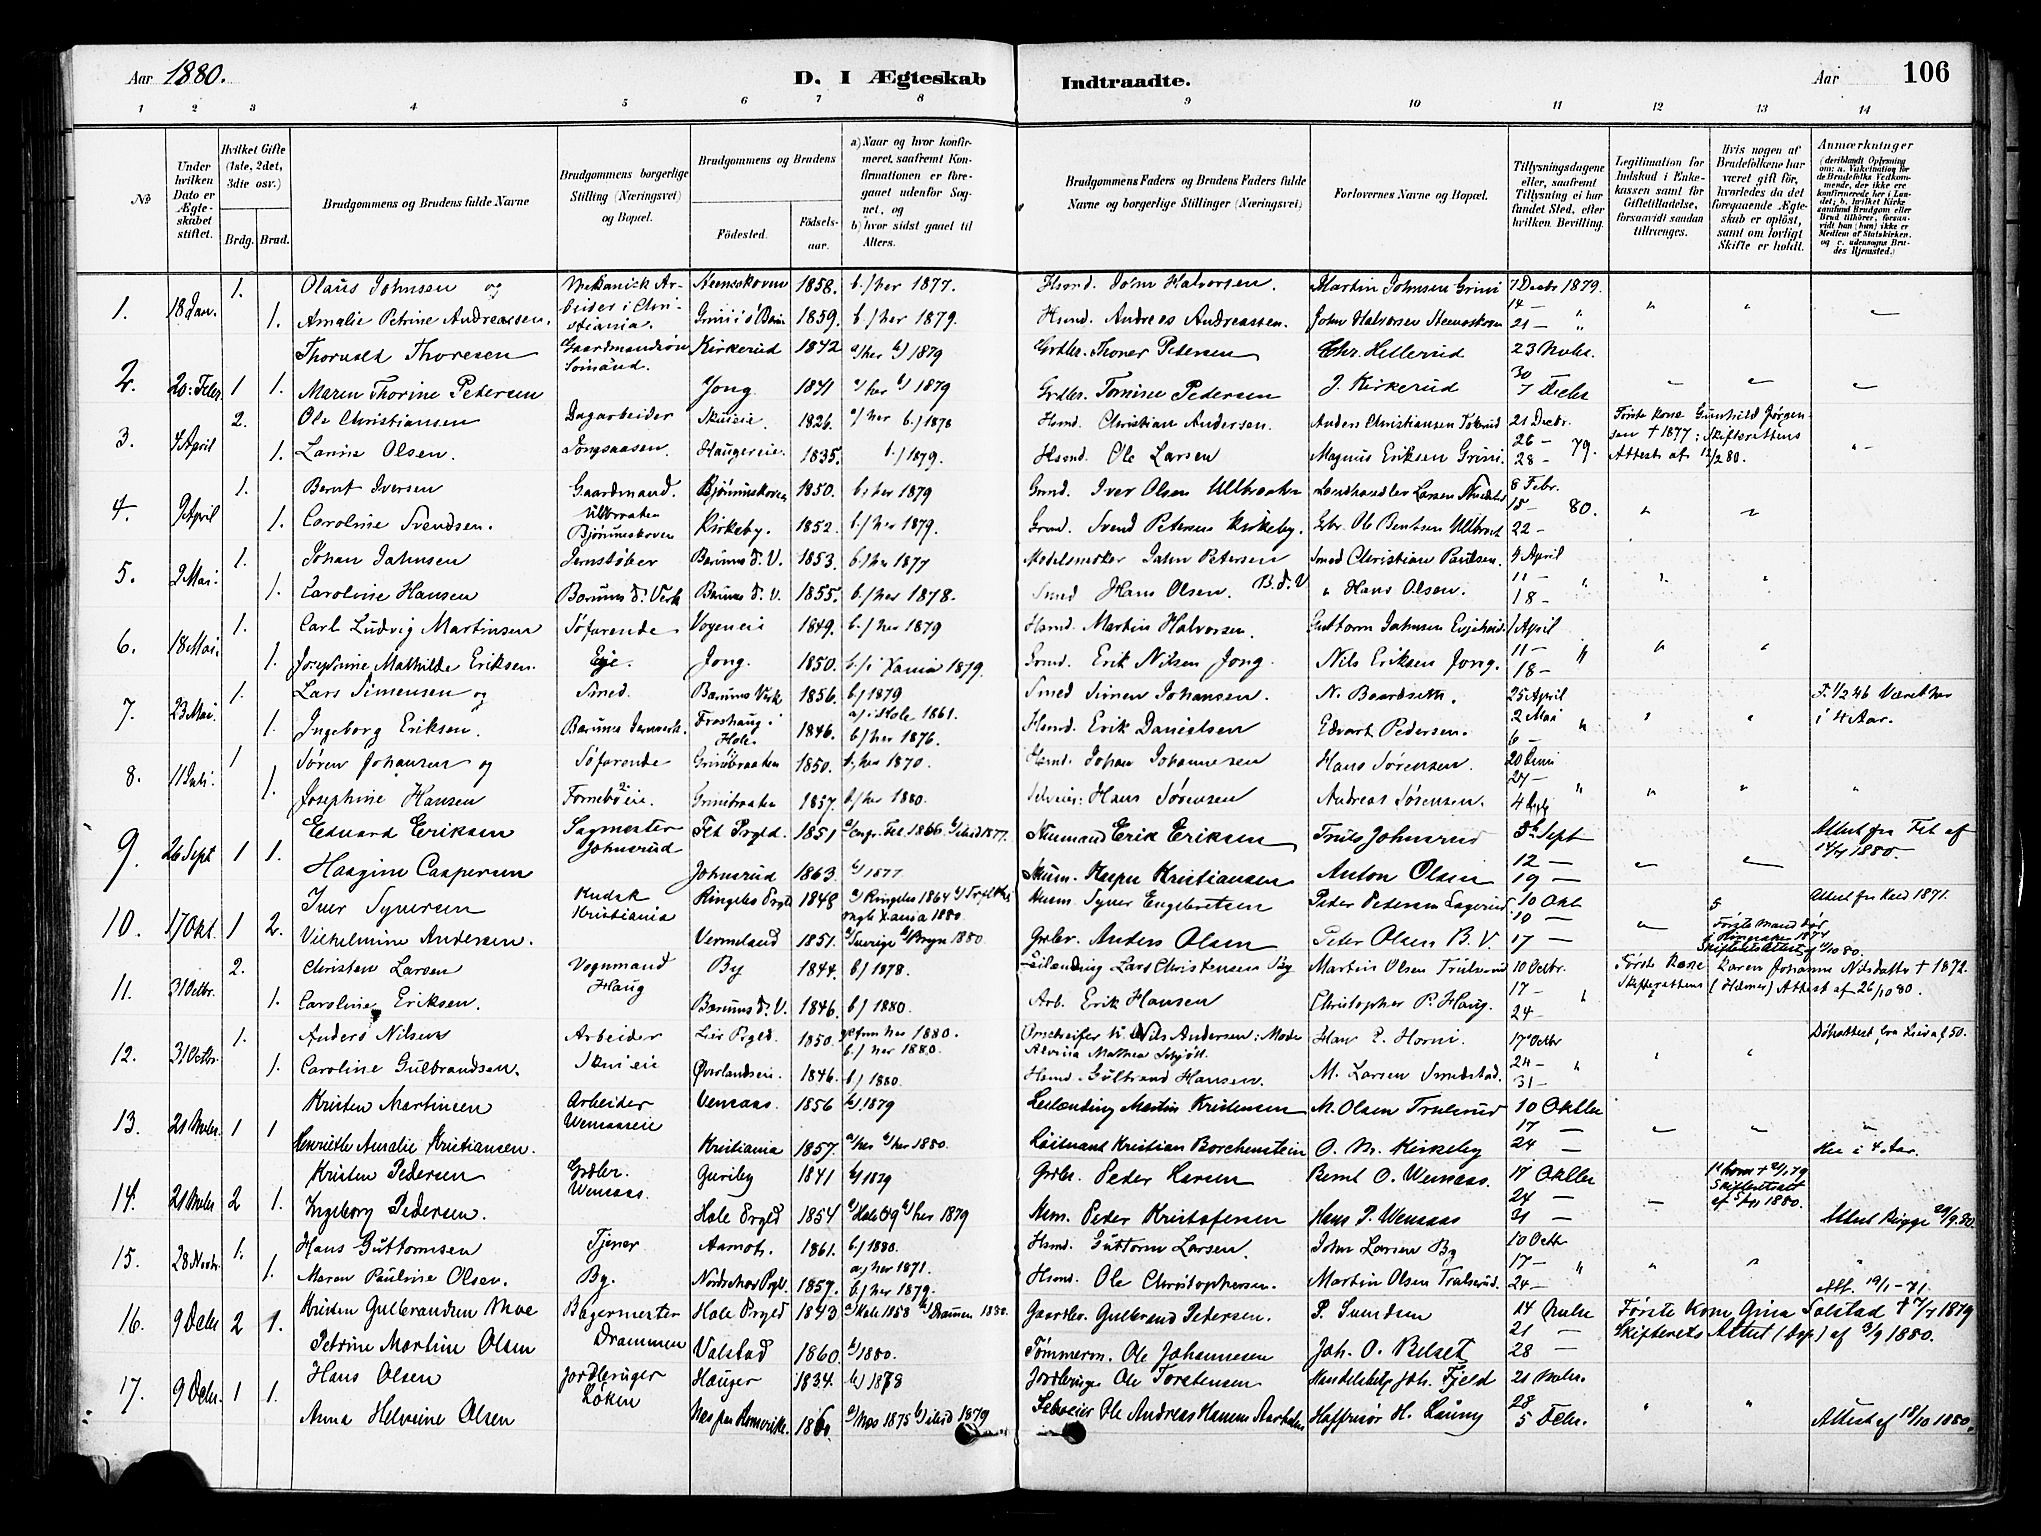 Aar 1880.
D. I Ægteskab Indtraadte.
Aar
106
1 2 3 4 5 6 7 8 9 10 11 12 13 14
No
Under hvilken Dato er Ægteskabet stiftet.
Hvilket Gifte (1ste, 2det, 3die osv.)
Brdg. Brud.
Brudgommens og Brudens fulde Navne
Brudgommens borgerlige Stilling (Næringsvei) og Bopæl.
Brudgommens og Brudens
Fødested.
Fødselsaar.
a) Naar og hvor konfirmeret, saafremt Konfirmationen er foregaaet udenfor Sognet, og
b) hvor sidst gaaet til Alters.
Brudgommens Faders og Brudens Faders fulde Navne og borgerlige Stillinger (Næringsvei)
Forlovernes Navne og Bopæl.
Tillysningsdagene eller, saafremt Tillysning ei har fundet Sted, efter hvilken Bevilling.
Legitimation for Indskud i Enkekassen samt for Giftetilladelse, forsaavidt saadan tiltrænges.
Hvis nogen af Brudefolkene har været gift før, hvorledes da det foregaaende Ægteskab er opløst, samt om lovligt Skifte er holdt.
Anmærkninger
(deriblandt Oplysning om: a. Vaksination for de Brudefolks Vedkommende, der ikke ere konfirmerede her i Landet; b. hvilket Kirkesamfund Brudgom eller Brud tilhører, forsaavidt han (hun) ikke er Medlem af Statskirken, og c. udensogns Brudes Hjemsted.)
1. 18 Jan. 1. Olaus Johnsen og Mekanisk Arbeider i Christiania. 1858. b.) her 1877. Hsmd. John Halvorsen. Martin Johnsen Grini 7 Decbr 1879.
1. Amalie Petrine Andreassen. 1859. b.) her 1879. Hsmd. Andreas Andreassen. John Halvorsen 14 — 21 — "
2. 20. Febr 1 1. Thorvald Thoresen Gaardmandsøn Kirkerud 1842 a/ her b/ 1879 Grdbr. Thoner Petersen Chr. Hellerud 23 Novbr.
Maren Thorine Petersen Jong 1841 a/ her b/ 1879 Grdbr. Petersen J. Kirkerud 30 7 Decbr
3. 4 April 2. Ole Christiansen Dagarbeider Skuieie. 1826. a/ her b/ 1878 Hsmd. Christian Andersen. Anders Christiansen 21 Decbr. Første Kone Gunhild Jørgensen † 1877; Skifterettens
1. Larine Olsen. Jongsaasen. Haugereie. 1835. b/ 1879. Hsmd. Ole Larsen Magnus Eriksen Grini. 26 — 28 — 79. Attest af 12/2 80.
4. 9 April 1. Bernt Iversen Gaardmand. Bjørumskoven 1850. b. her 1879 Grmd. Iver Olsen Ulbraaten Landhandler Larsen 8 Febr.
1. Caroline Svendsen. Ulbraaten Bjørumskoven Kirkeby. 1852. b/ her 1879. Grmd. Svend Petersen Kirkeby. Gbr. Ole Berntsen Ulbraat 15 — 80. 22 —
5. 2 Mai. 1. Johan Jahnsen Jernstøber Bærums d. V. 1853. b/ her 1877 Modelsnøker Jahn Petersen Smed Christian Paulsen. 4 April
1. Caroline Hansen Bærums d. Verk Bærums d. V. 1855. b/ her 1878. Smed Hans Olsen. B. d. V " Hans Olsen. 11 — " 18 —
6. 18 Mai. 1. Carl Ludvig Martinsen Søfarende Vøyeneie 1849. b/ her 1879 Hsmd. Martin Halvorsen. Guttorm Jahnsen April
1. Josephine Mathilde Eriksen. Eje. Jong. 1850. b/ i Xania 1879. Grmd. Erik Nilsen Jong. Nils Eriksen Jong. 11 — " 18 —
7. 23 Mai. 1. Lars Simensen og Smed. Bærums Verk 1856. b/ 1879 Smed Simen Johansen. N. Baardseth. 25 April Været her i 4 Aar.
1. Ingeborg Eriksen. Bærums Jernverk. Froshaug i Hole. 1846. a) i Hole 1861. b) her 1876. Hsmd. Erik Danielsen Edvart Pedersen. 2 Mai 6 — "
8. 11 Juli. 1 Søren Johansen og Søfarende Grinibraaten 1850. b, her 1870. Hsmd. Johan Johannesen Hans Sørensen. 20 Juni
1. Josephine Hansen Forneboeie. Grinibraaten 1857. b/ her 1880. Selveier. Hans Sørensen Andreas Sørensen. 27 — " 4 Juli
9. 26 Sept 1 1. Edvard Eriksen Sagmester Johnsrud Fet Prgld. 1851 Huusmand Erik Eriksen Truls Johnsrud 5te Sept Attest fra Fet af 14/4 1880.
Haagine Caspersen Johnsrud 1863. b/ 1877 Husm. Kasper Kristiansen Anton Olsen 12 — 19 —
10. 17 Okt. 1 2. Iver Syversen Kudsk Kristiania Ringebo Prgld 1848 a/ Ringebo 1864 Husm. Syver Engebretsen Peder Pedersen Lagerud 10 Okt 10 — Attest fra 1871.
Vilhelmine Andersen. Vermeland 1851. a/ Sverige b/ Bryn 1880. Grdbr. Anders Olsen Peter Olsen B. V. 17 — Første Mand død
11. 31 Octbr. 2. Christen Larsen Vognmand By 1844. b) 1878. Leilænding Lars Christensen By Martin Olsen Trulserud 10 Octbr. Første Kone Karen Johanne Nilsdatter † 1872.
1. Caroline Eriksen. Haug Bærums d. V. 1846. b) 1880. Arb. Erik Hansen Christopher P. Haug. 17 — " 24 — Skifterettens Attest af 26/10 80.
12. 31 Octbr. 1. Anders Nilsen Arbeider Lier Prgld. 1850. her 1880. b/ her 1880. Nils Andersen: Moder Mathea Hans E. Horni. 17 Octbr Døbeattest fra Lier af 50.
1. Caroline Gulbrandsen. Skuieie Øverlandseie. 1846. b) 1880. Hsmd. Gulbrand Hansen. M. Larsen Smedstad. 24 — " 31 —
13. 21 Novbr. 1 1 Kristen Martinsen Arbeider Vensaas. 1856 b) 1879 Leilænding Martin Kristensen M. Olsen Trulsrud 10 Oktbr
Henriette Amalie Kristiansen. Kristiania 1857. a/ her b/ her 1880. Løitnant Kristian Borchenstein O. M. Kirkeby 17 — 24 — Her i 4 Aar.
14. 21 Novbr 2 1. Kristen Pedersen Grdbr. Wensaas. Guriby 1841 b) 1879 Grdbr. Peder Larsen Bernt O. Wensaas. 17 Oktbr
Ingeborg Pedersen. Hole Prgld 1854 a/ Hole 69 b/ her 1879 Hsm. Peder Kristofersen Hans P. Wensaas 24 — 31 — Attest Bigge 29/9 80.
15. 28 Novbr. 1. Hans Guttormsen Tjener Aamot. 1861. b) 1880. Hsmd. Guttorm Larsen. John Larsen By 10 Octb
1. Maren Pauline Olsen. By. 1857. a) her 1871. b) her 1879. Hsmd. Ole Christophersen. Martin Olsen Trulserud. 17 — " 24 — Att. 19/1 - 71.
16. 9 Decbr 2 1. Kristen Gulbrandsen Moe Bagermester Drammen Hole Prgld 1843 a) Hole 1858 b) Drammen 1880. Gaardbr. Gulbrand Pedersen. P. Svendsen 14 Novbr Første Kone Gina Solstad † 7/7 1879
Petrine Martine Olsen Valstad 1860. b) 1880. Tømmerm. Ole Johannesen Joh. O. Belset 21 — 28 — Skifterets Attest af 3/9 1880.
17. 9 Decbr. 1 1. Hans Olsen Jordbruger Løken Hauger 1834. b) 1878 Jordbruger Ole Torstensen Handelsbetj. Joh. Fjeld 21 Novbr.
Anna Helvine Olsen Nes paa Romerike. 1860. a) Nes 1875 b) 1879 Selveier Ole Andreas Hansen H. Launy 28 5 Decbr. Attest af 18/10 1880.